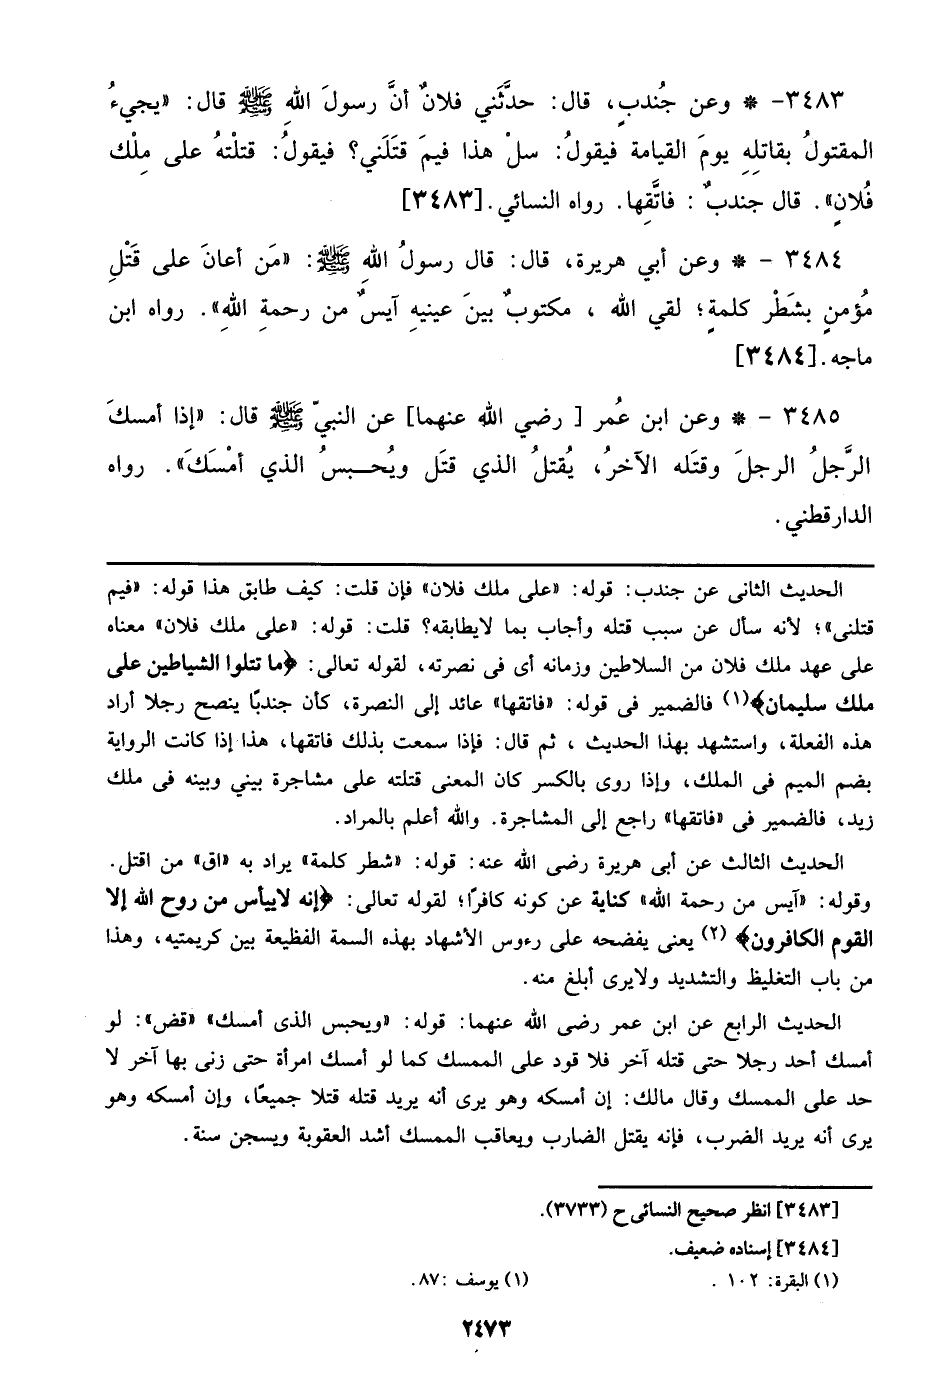 ٣٤٨٣- * وعن جُندبٍ، قال: حدَّثَني فلانٌ أنَّ رسولَ اللهِ ﷺ قال: «يجيءُ
المقتولُ بقاتلِهِ يومَ القيامة فيقولُ: سلْ هذا فيمَ قتَلَني؟ فيقولُ: قتلْتهُ على مِلْك
فُلانٍ». قال جندبٌ: فاتَّقِها. رواه النسائي.[٣٤٨٣]
٣٤٨٤ - * وعن أبي هريرة، قال: قال رسولُ اللهِ ﷺ: «مَن أعانَ على قَتْلِ
مؤُمنٍ بشَطْر كلمةٍ؛ لقي الله ، مكتوبٌ بينَ عينيهِ آيسٌ من رحمةِ اللهِ». رواه ابن
ماجه.[٣٤٨٤]
٣٤٨٥ - * وعن ابن عُمر [ رضي الله عنهما] عن النبيّ ﷺ قال: «إذا أمسكَ
الرَّجلُ الرجلَ وقتَله الآخرُ، يُقتلُ الذي قتَل ويُحبسُ الذي أمْسَكَ». رواه
الدارقطني.
الحديث الثانى عن جندب: قوله: «على ملك فلان» فإن قلت: كيف طابق هذا قوله: «فيم
قتلنى»؛ لأنه سأل عن سبب قتله وأجاب بما لايطابقه؟ قلت: قوله: «على ملك فلان» معناه
على عهد ملك فلان من السلاطين وزمانه أى فى نصرته، لقوله تعالى: ﴿ما تتلوا الشياطين على
ملك سليمان﴾(١) فالضمير فى قوله: «فاتقها» عائد إلى النصرة، كأن جندبًا ينصح رجلا أراد
هذه الفعلة، واستشهد بهذا الحديث ، ثم قال: فإذا سمعت بذلك فاتقها، هذا إذا كانت الرواية
بضم الميم فى الملك، وإذا روى بالكسر كان المعنى قتلته على مشاجرة بيني وبينه فى ملك
زيد، فالضمير فى «فاتقها» راجع إلى المشاجرة. والله أعلم بالمراد.
الحديث الثالث عن أبى هريرة رضى الله عنه: قوله: «شطر كلمة» يراد به «اق» من اقتل.
وقوله: «آيس من رحمة الله» كناية عن كونه كافرًا؛ لقوله تعالى: ﴿إنه لاييأس من روح الله إلا
القوم الكافرون﴾ (٢) يعنى يفضحه على رءوس الأشهاد بهذه السمة الفظيعة بين كريمتيه، وهذا
من باب التغليظ والتشديد ولايرى أبلغ منه.
الحديث الرابع عن ابن عمر رضى الله عنهما: قوله: «ويحبس الذى أمسك» «قض»: لو
أمسك أحد رجلا حتى قتله آخر فلا قود على الممسك كما لو أمسك امرأة حتى زنى بها آخر لا
حد على الممسك وقال مالك: إن أمسكه وهو يرى أنه يريد قتله قتلا جميعًا، وإن أمسكه وهو
يرى أنه يريد الضرب، فإنه يقتل الضارب ويعاقب الممسك أشد العقوبة ويسجن سنة.
[٣٤٨٣] انظر صحيح النسائى ح (٣٧٣٣).
[٣٤٨٤] إسناده ضعيف.
(١) البقرة: ١٠٢ . (١) يوسف :٨٧.
٢٤٧٣